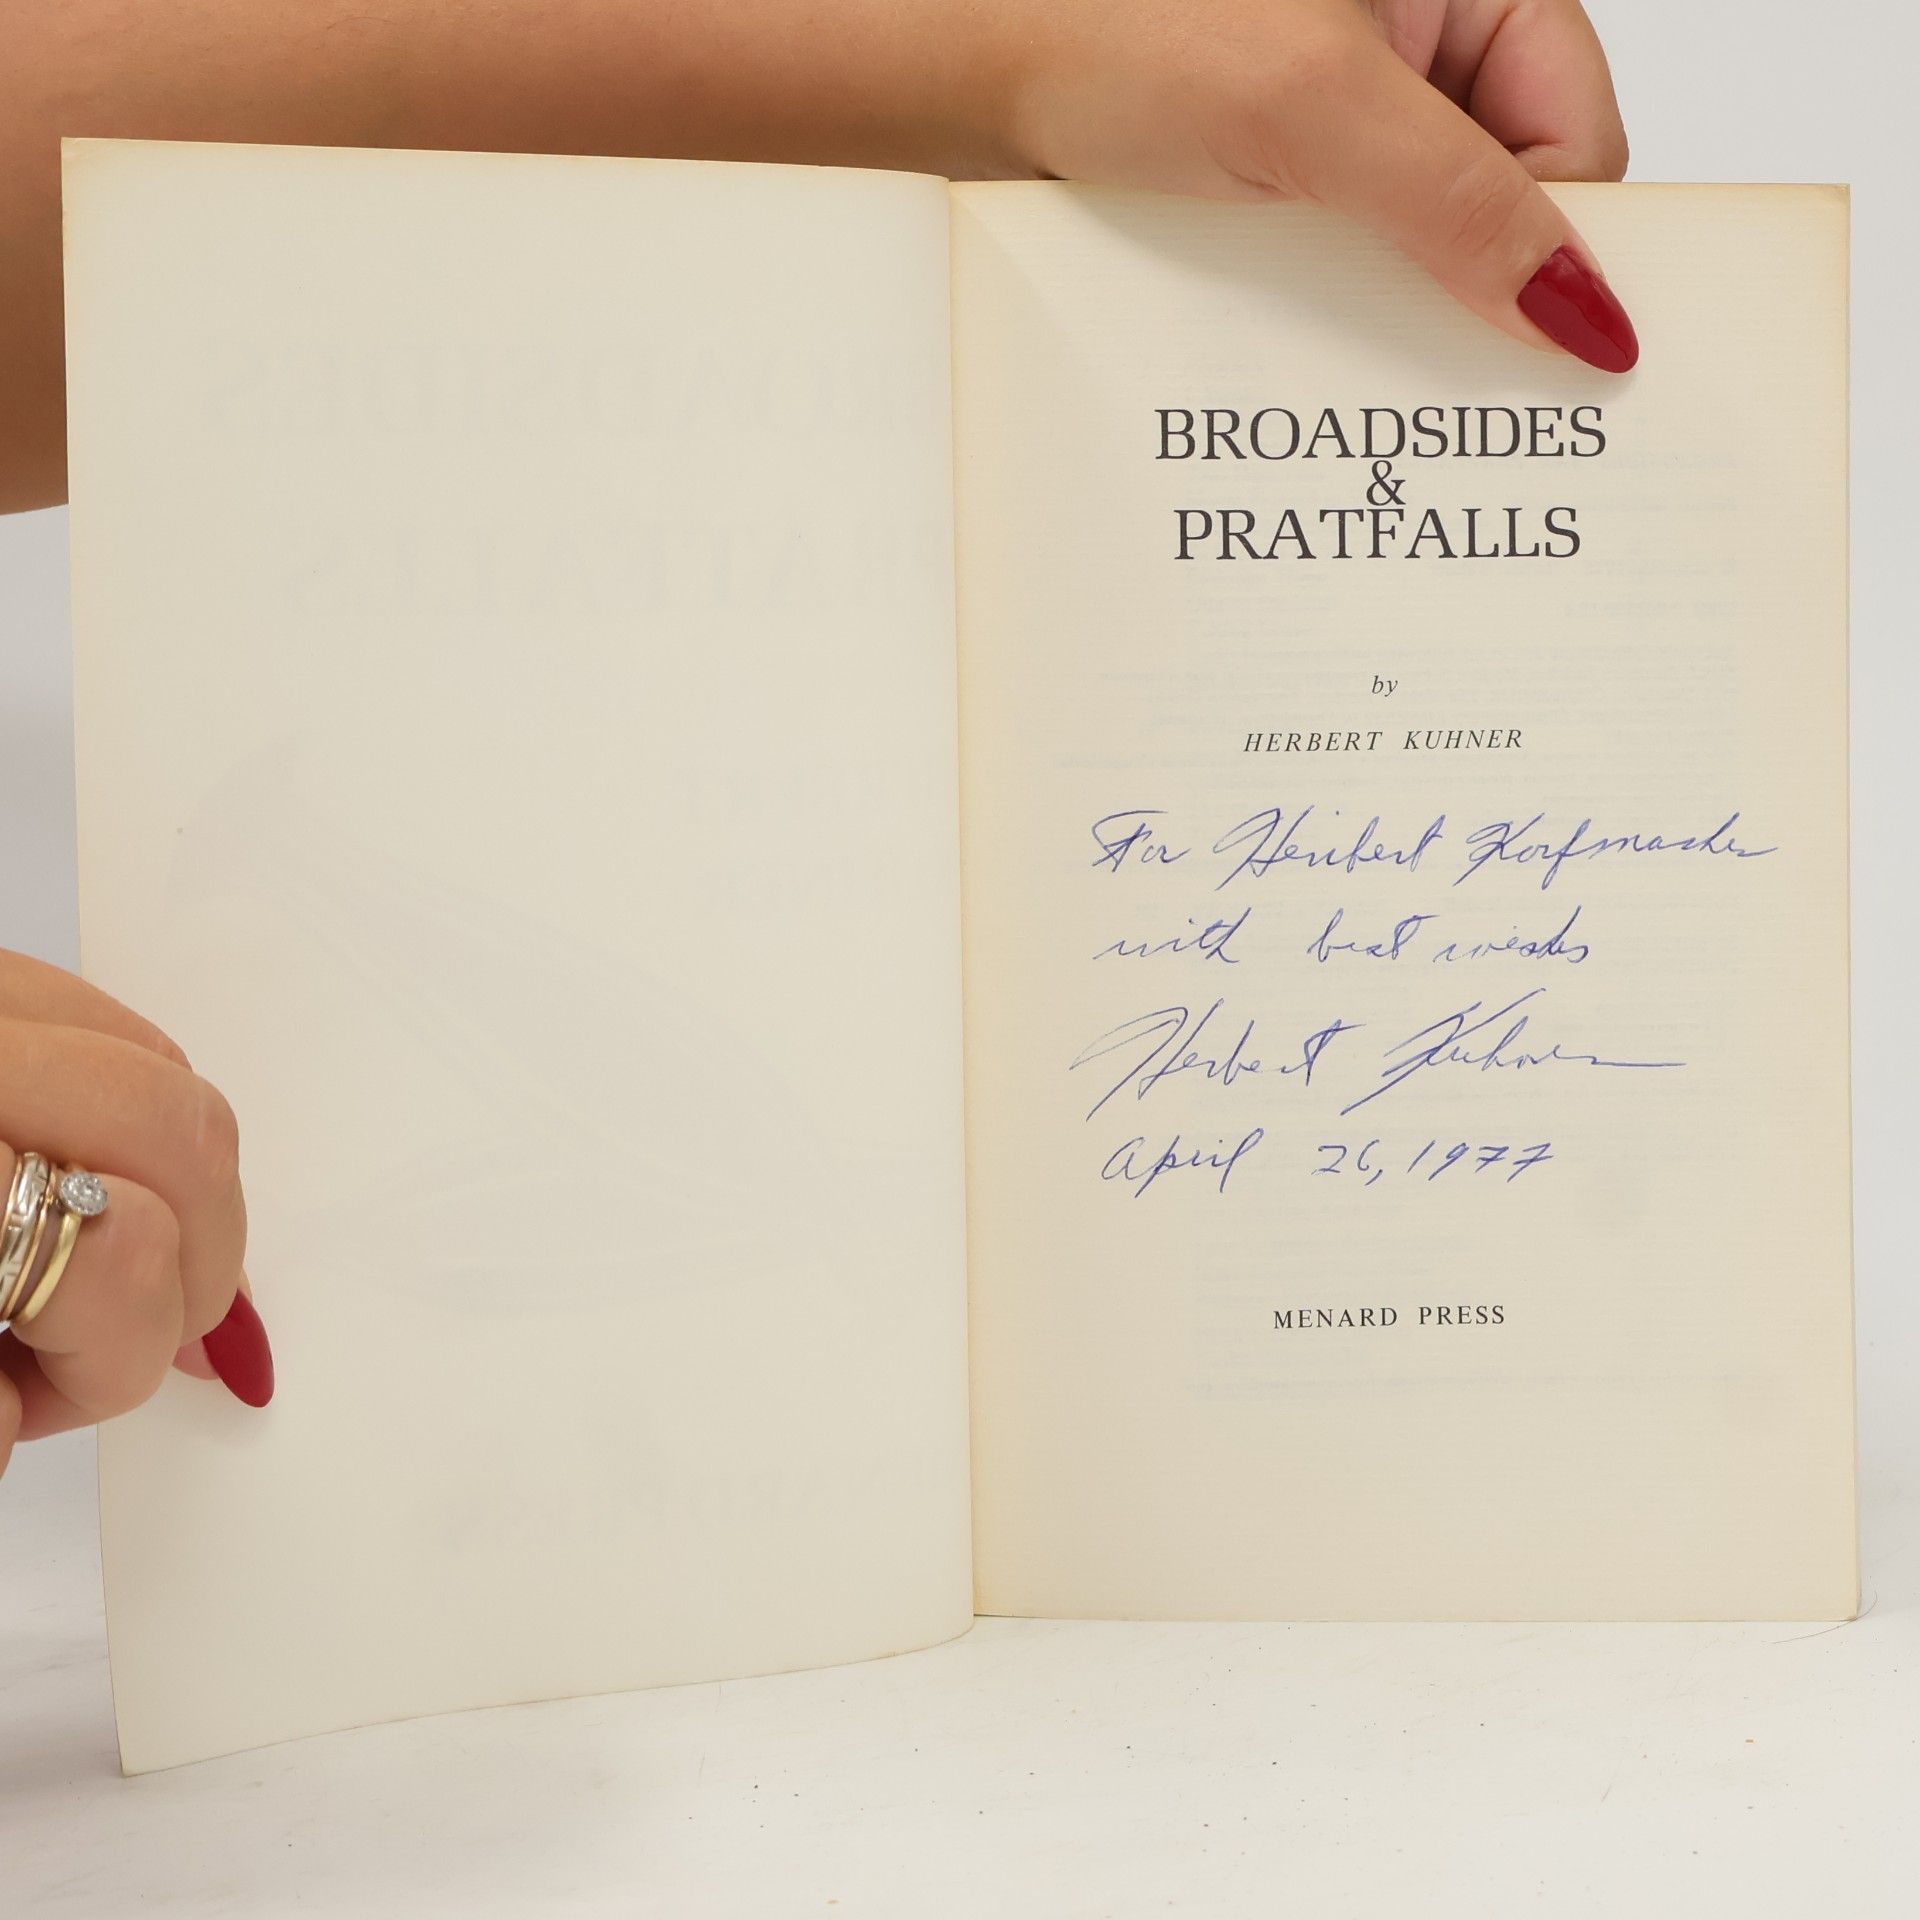 BROADSIDES
&
PRATFALLS
by
HERBERT KUHNER
For Heribert Korfmacher
with best wishes
Herbert Kuhner
April 26, 1977
MENARD PRESS